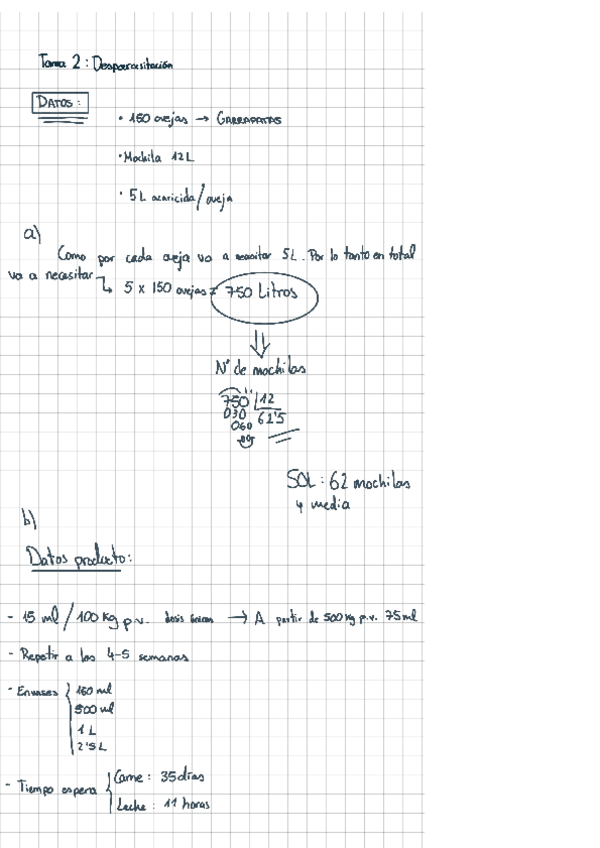 Tarea 2: Desparasitación
DATOS:
· 150 ovejas → GARRAPATAS
· Mochila 12L
· 5L acaricida/oveja
a)
Como por cada oveja va a necesitar 5L. Por lo tanto en total
va a necesitar
↳ 5 x 150 ovejas = 750 Litros
⇓
Nº de mochilas
750 | 12
030 62'5
060
00
SOL: 62 mochilas
y media
b)
Datos producto:
- 15 ml/100 Kg p.v. dosis única → A partir de 500 kg p.v. 75 ml
- Repetir a las 4-5 semanas
- Envases { 150 ml
500 ml
1 L
2'5 L
- Tiempo espera { Carne: 35 días
Leche: 11 horas